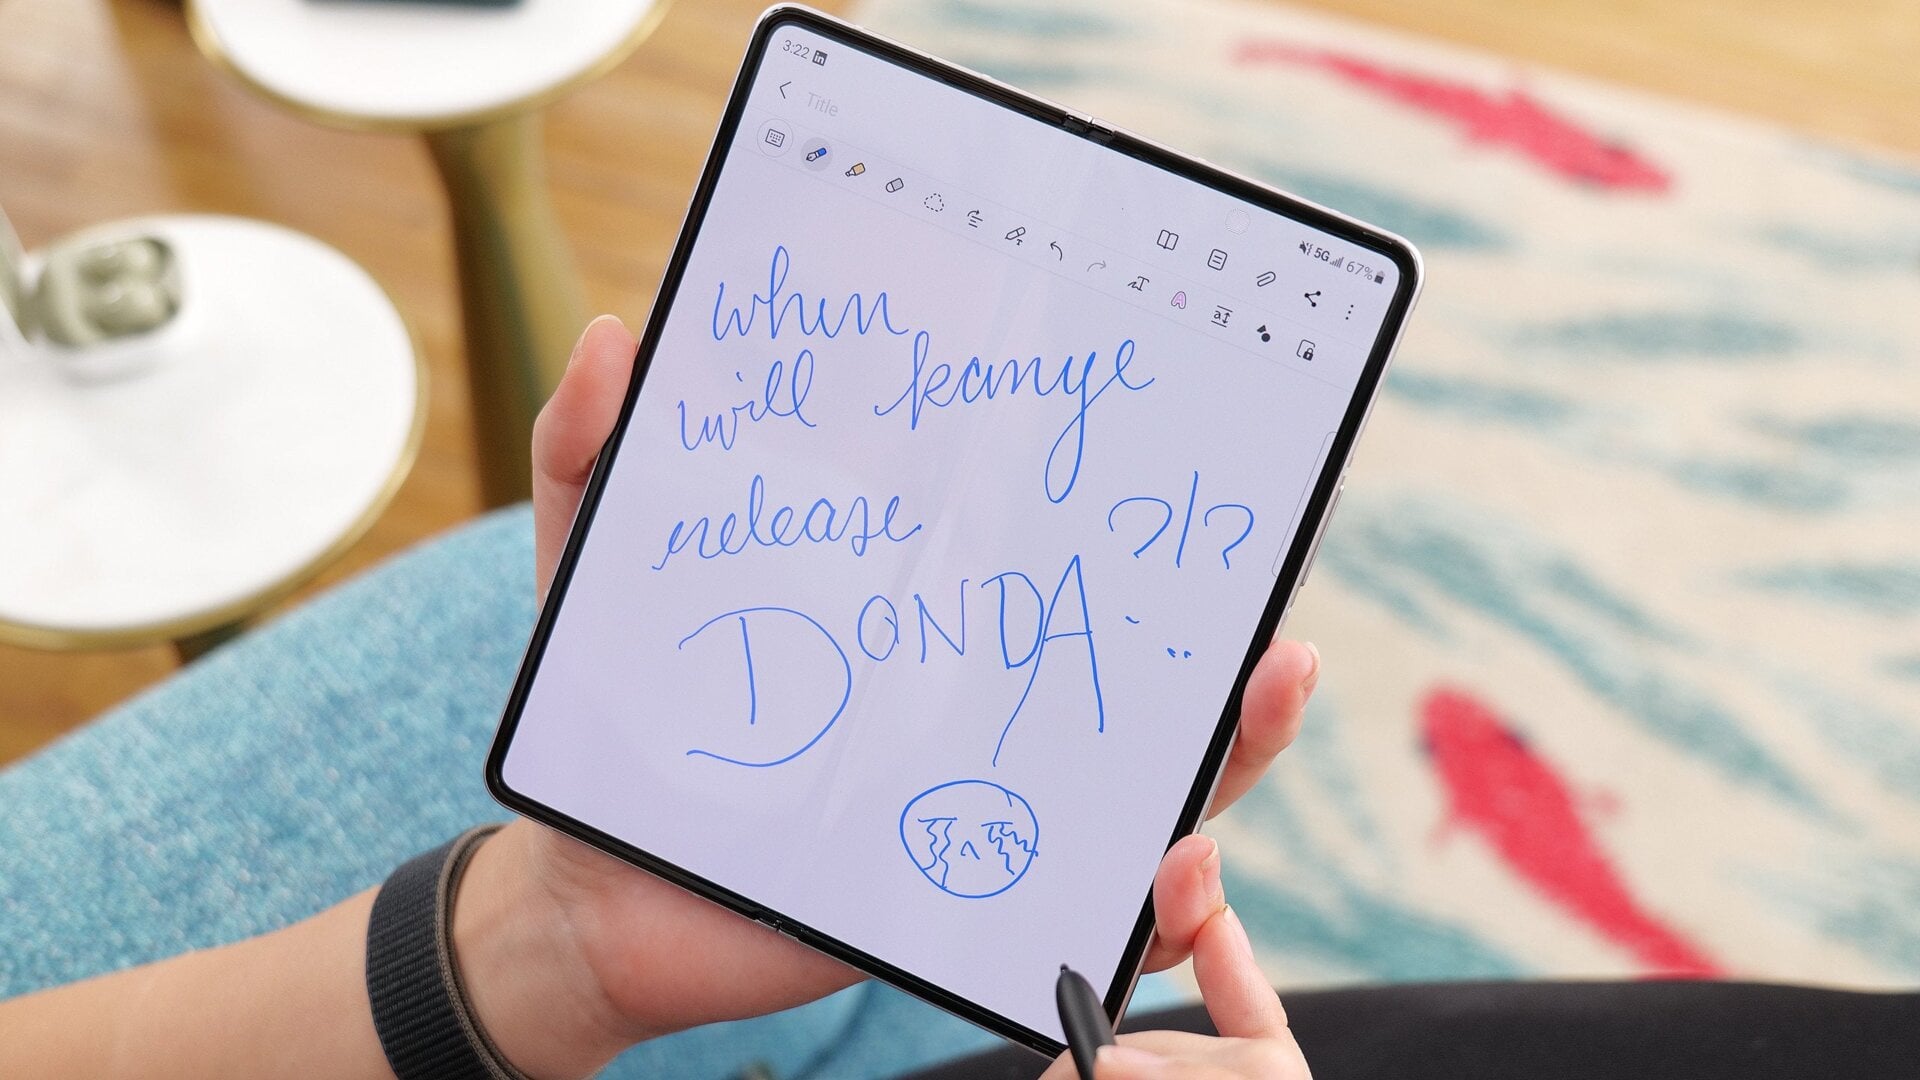 3:22 in
5G 67%
Title
when
will kanye
release ?/?
DONDA